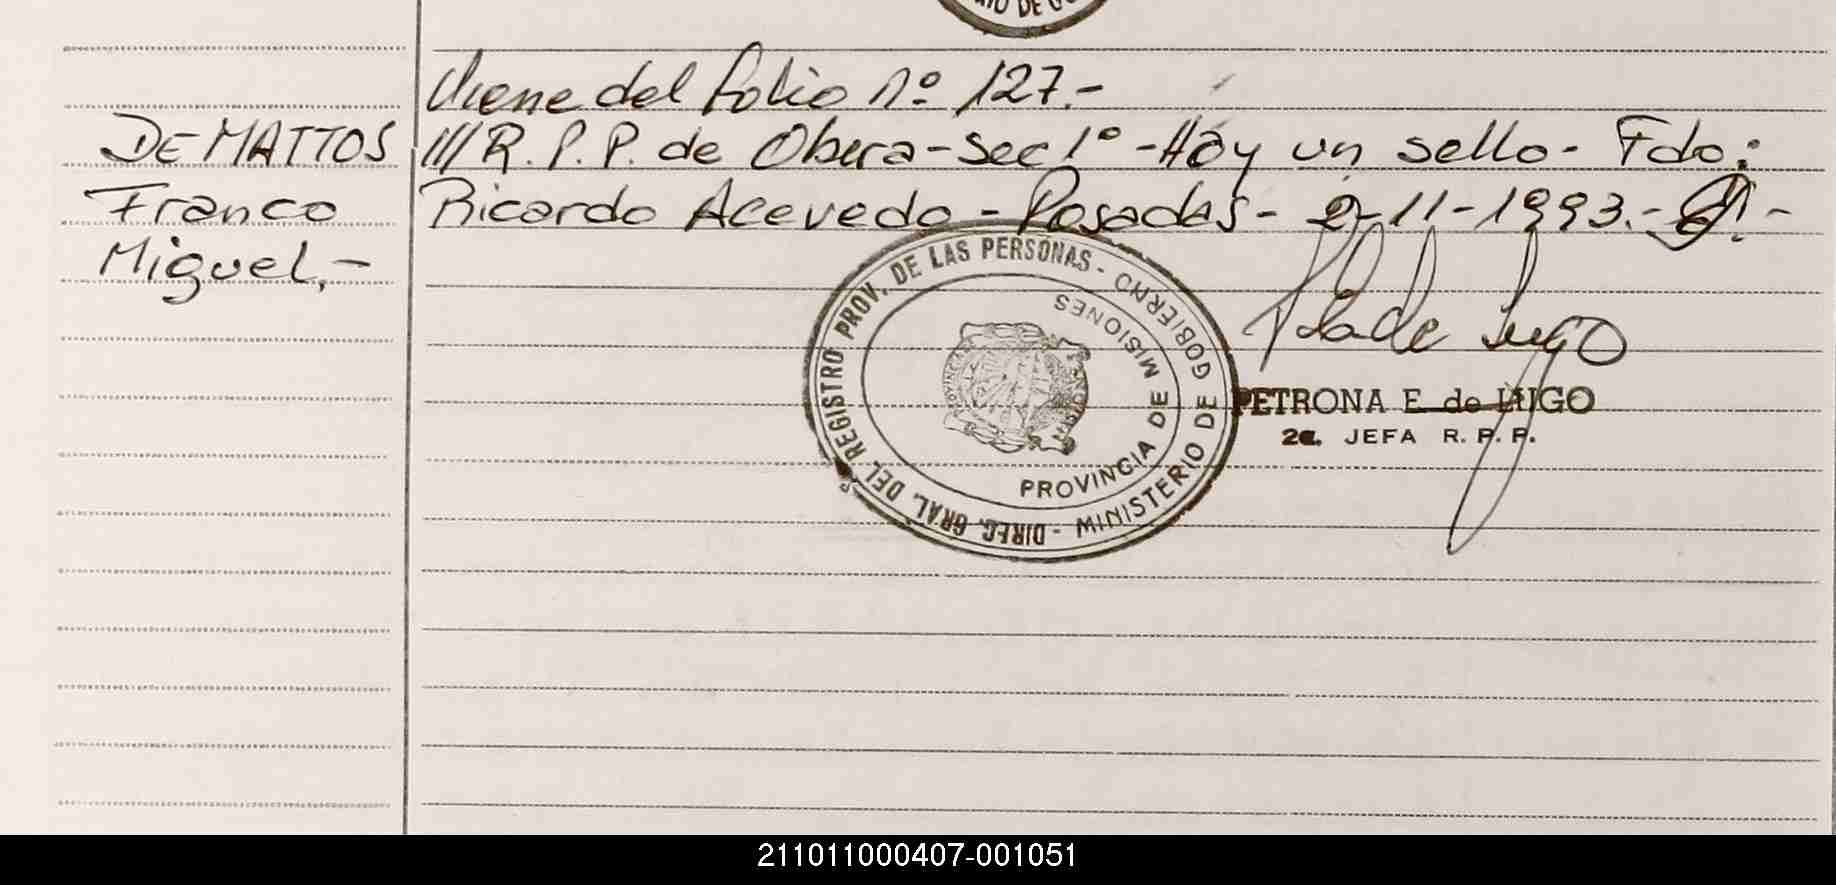 Viene del folio nº 127.-
DE MATTOS
///R.P.P. de Obera-Sec 1º-Hay un sello- Fdo:
Franco
Ricardo Acevedo - Posadas- 2-11-1993.-
Miguel.-
DIREC. GRAL. DEL REGISTRO PROV. DE LAS PERSONAS - MINISTERIO DE GOBIERNO
PROVINCIA DE MISIONES
P. de Lugo
PETRONA E. de LUGO
2a. JEFA R. P. P.
211011000407-001051